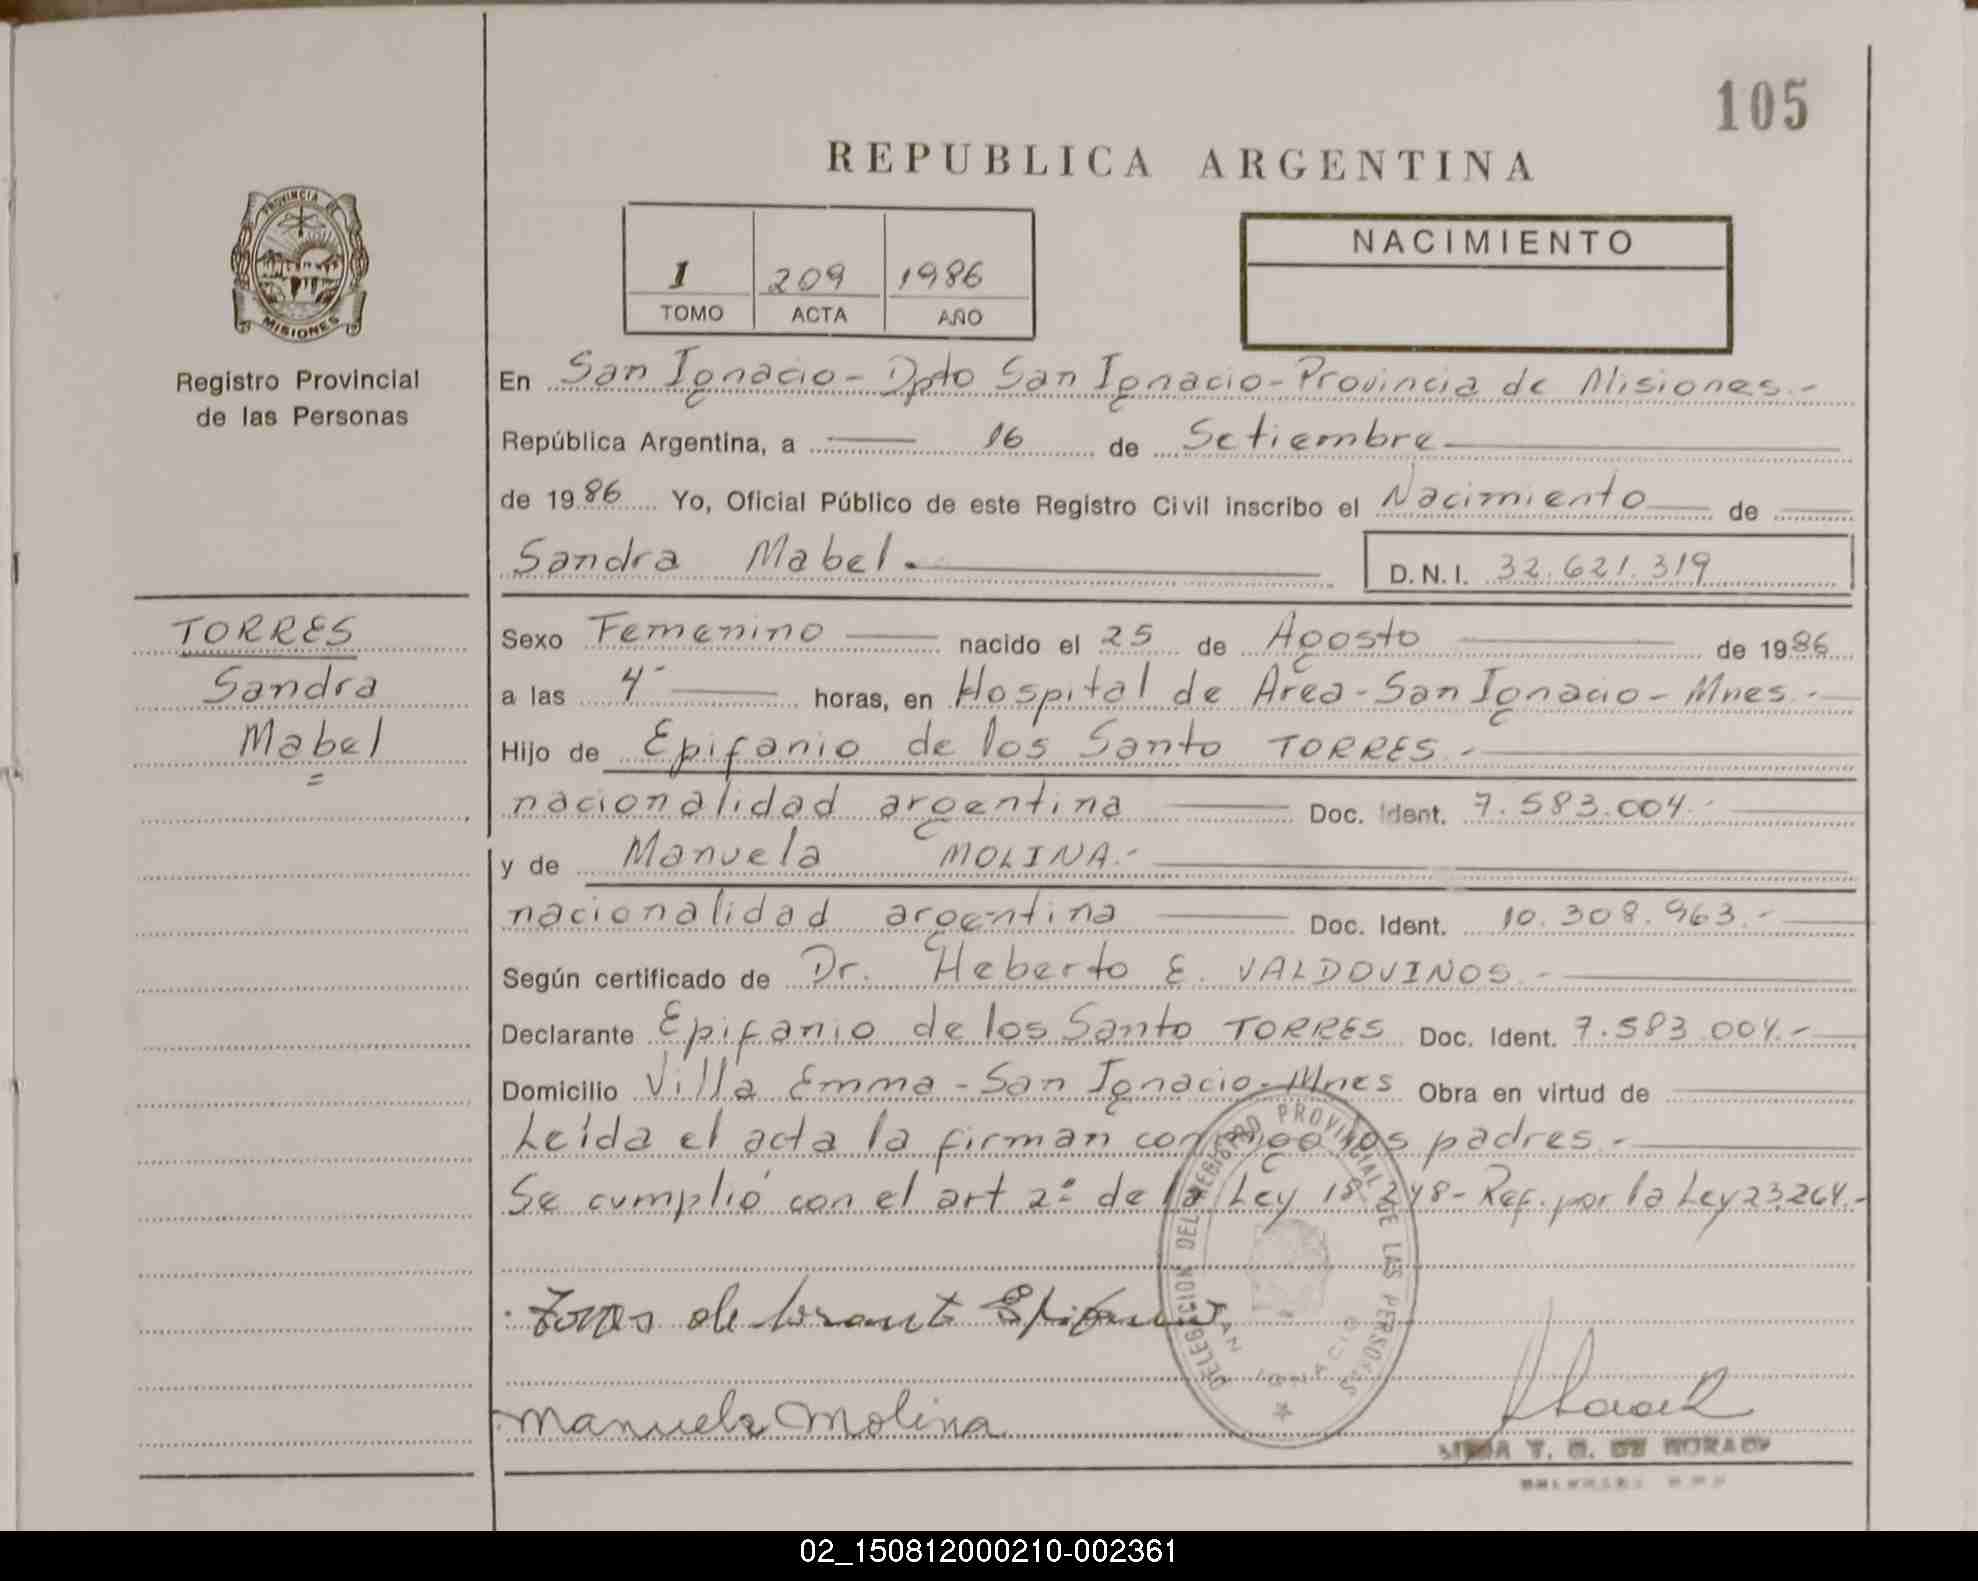 105
REPUBLICA ARGENTINA
PROVINCIA DE
MISIONES
Registro Provincial
de las Personas
1 209 1986
TOMO ACTA AÑO
NACIMIENTO
En San Ignacio - Dpto San Ignacio - Provincia de Misiones.-
República Argentina, a 16 de Setiembre
de 1986 Yo, Oficial Público de este Registro Civil inscribo el Nacimiento de
Sandra Mabel.
D.N.I. 32.621.319
TORRES
Sandra
Mabel
Sexo Femenino nacido el 25 de Agosto de 1986
a las 4 horas, en Hospital de Area - San Ignacio - Mnes.-
Hijo de Epifanio de los Santo TORRES.-
nacionalidad argentina Doc. Ident. 7.583.004.-
y de Manuela MOLINA.-
nacionalidad argentina Doc. Ident. 10.308.963.-
Según certificado de Dr. Heberto E. VALDOVINOS.-
Declarante Epifanio de los Santo TORRES Doc. Ident. 7.583.004.-
Domicilio Villa Emma - San Ignacio - Mnes Obra en virtud de
Leída el acta la firman conmigo los padres.-
Se cumplió con el art 2º de la Ley 18.248 - Ref. por la Ley 23.264.-
DELEGACION DEL REGISTRO PROVINCIAL DE LAS PERSONAS
SAN IGNACIO
Torres de Epifanio
Manuela Molina
DE
02_150812000210-002361